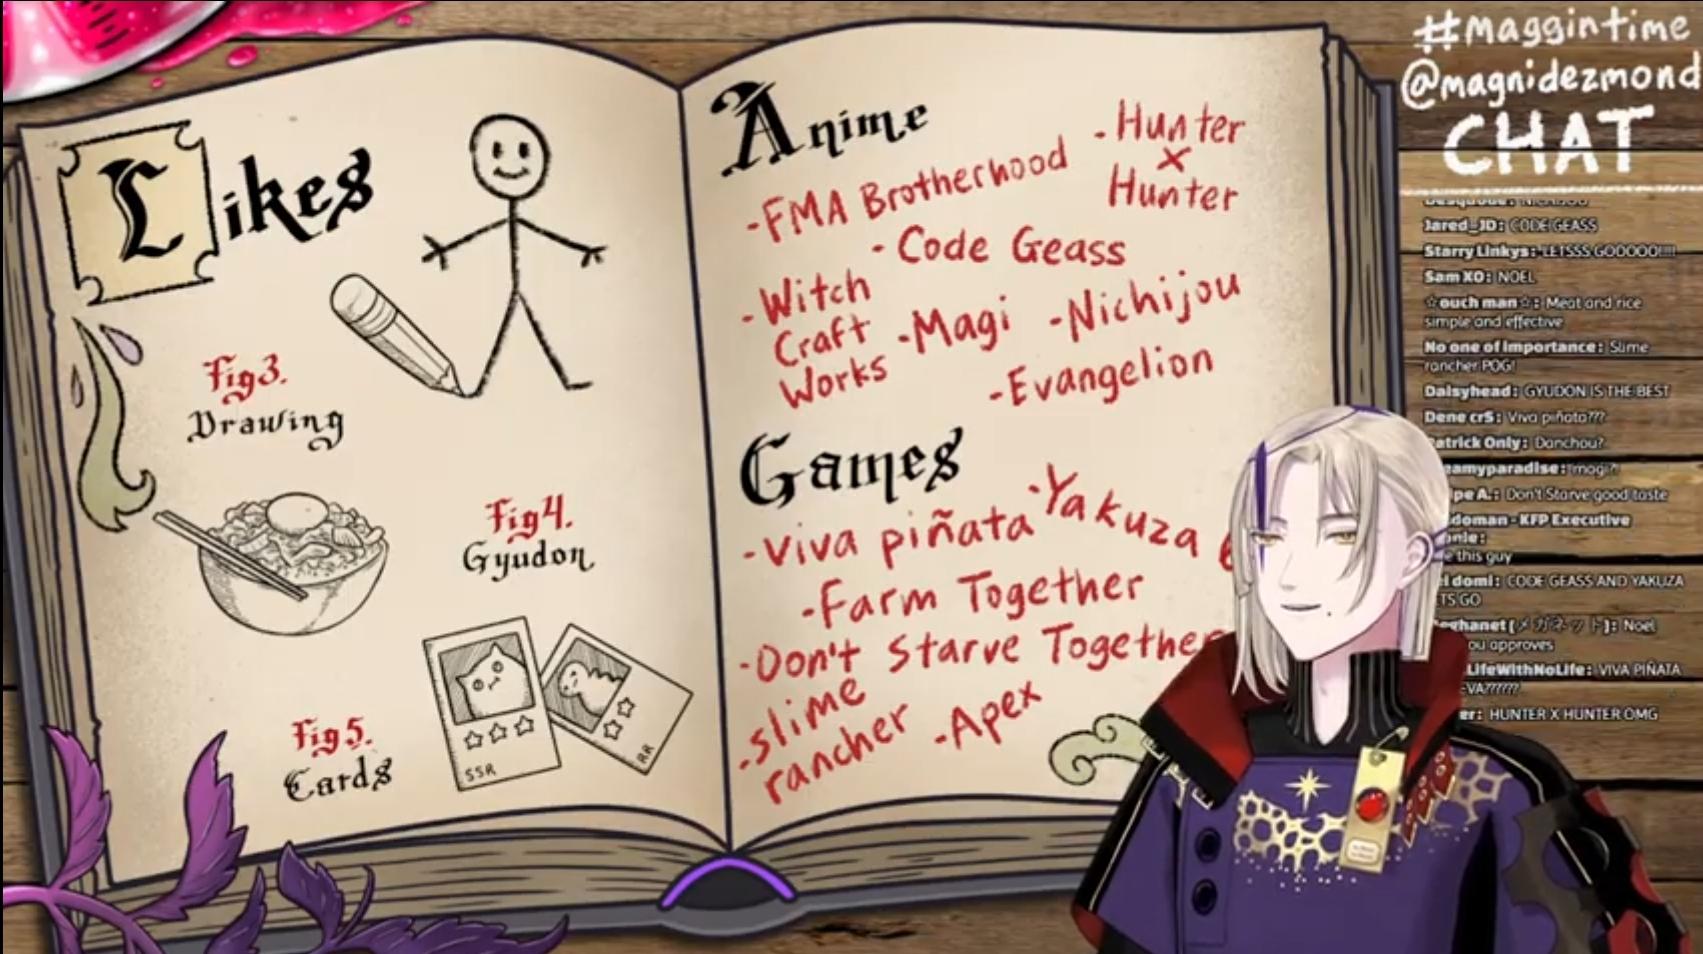 Likes
Fig3.
Drawing
Fig4.
Gyudon
Fig5.
Cards
SSR
RR
Anime
-FMA Brotherhood
-Hunter
x
Hunter
-Code Geass
-Witch
Craft
Works
-Magi
-Nichijou
-Evangelion
Games
-Viva piñata
-Yakuza
-Farm Together
-Don't Starve Together
-slime
rancher
-Apex
#maggintime
@magnidezmond
CHAT
Jared_JD: CODE GEASS
Starry Linkys: LETSSS GOOOOO!!!!
Sam XO: NOEL
☆ouch man☆: Meat and rice
simple and effective
No one of Importance: Slime
rancher POG!
Daisyhead: GYUDON IS THE BEST
Dene crS: Viva piñata???
atrick Only: Danchou?
eamyparadise: magi?!
pe A.: Don't Starve good taste
doman - KFP Executive
this guy
domi: CODE GEASS AND YAKUZA
TS GO
Noel
ou approves
LifeWithNoLife: VIVA PIÑATA
VA??????
er: HUNTER X HUNTER OMG